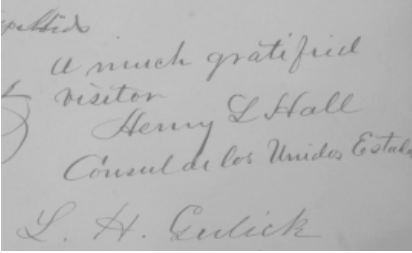 a much gratified
visitor
Henry L Hall
Consul de los Unidos Estado
L. H. Gulick